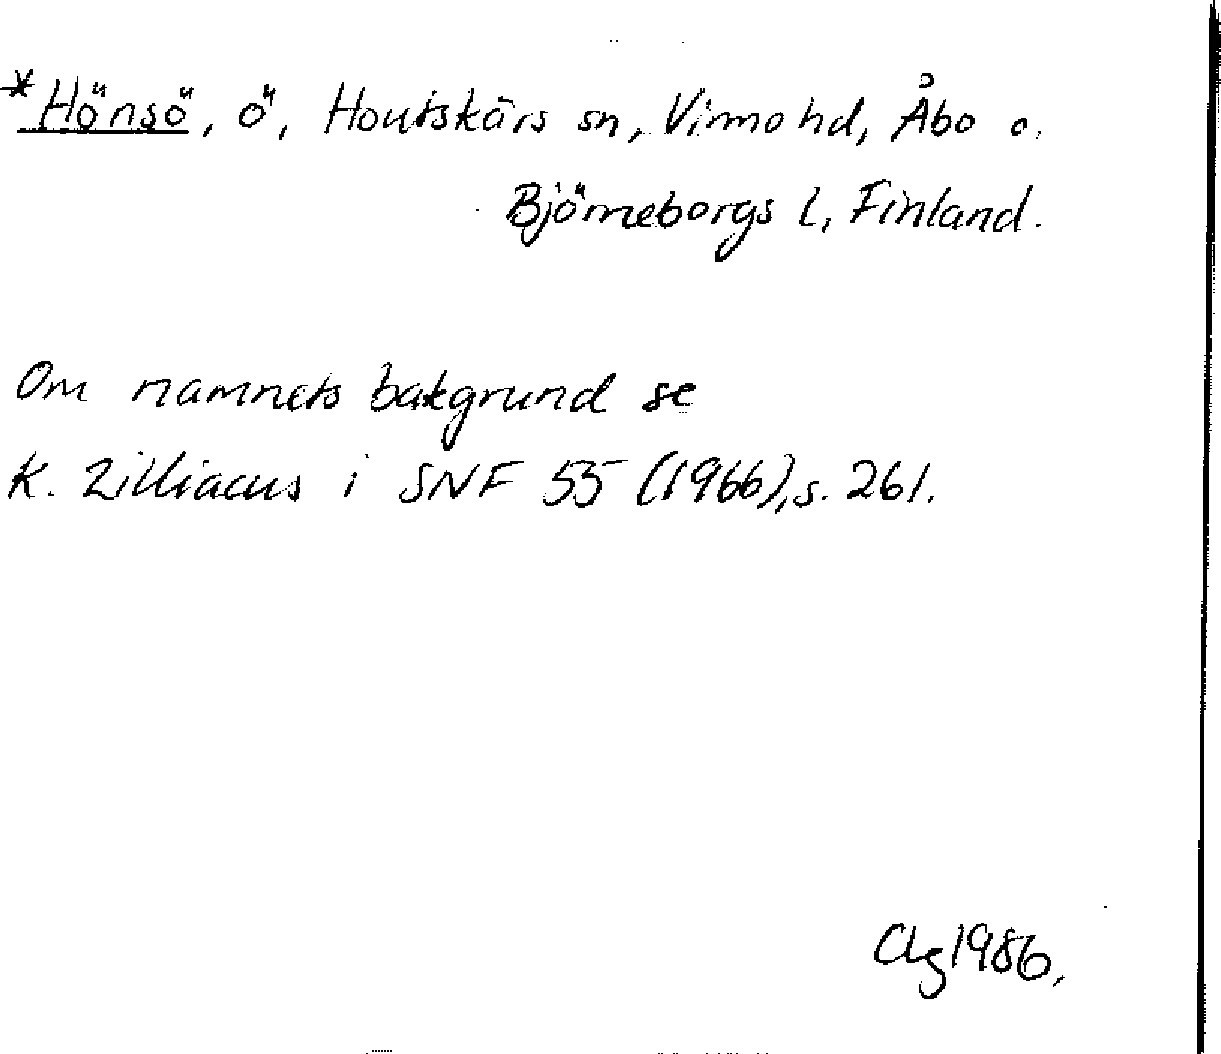 *Hönsö, ö, Houtskärs sn, Virmo hd, Åbo o.
Björneborgs l, Finland.
Om namnets bakgrund se
K. Zilliacus i SNF 55 (1966), s. 261.
Clg 1986.